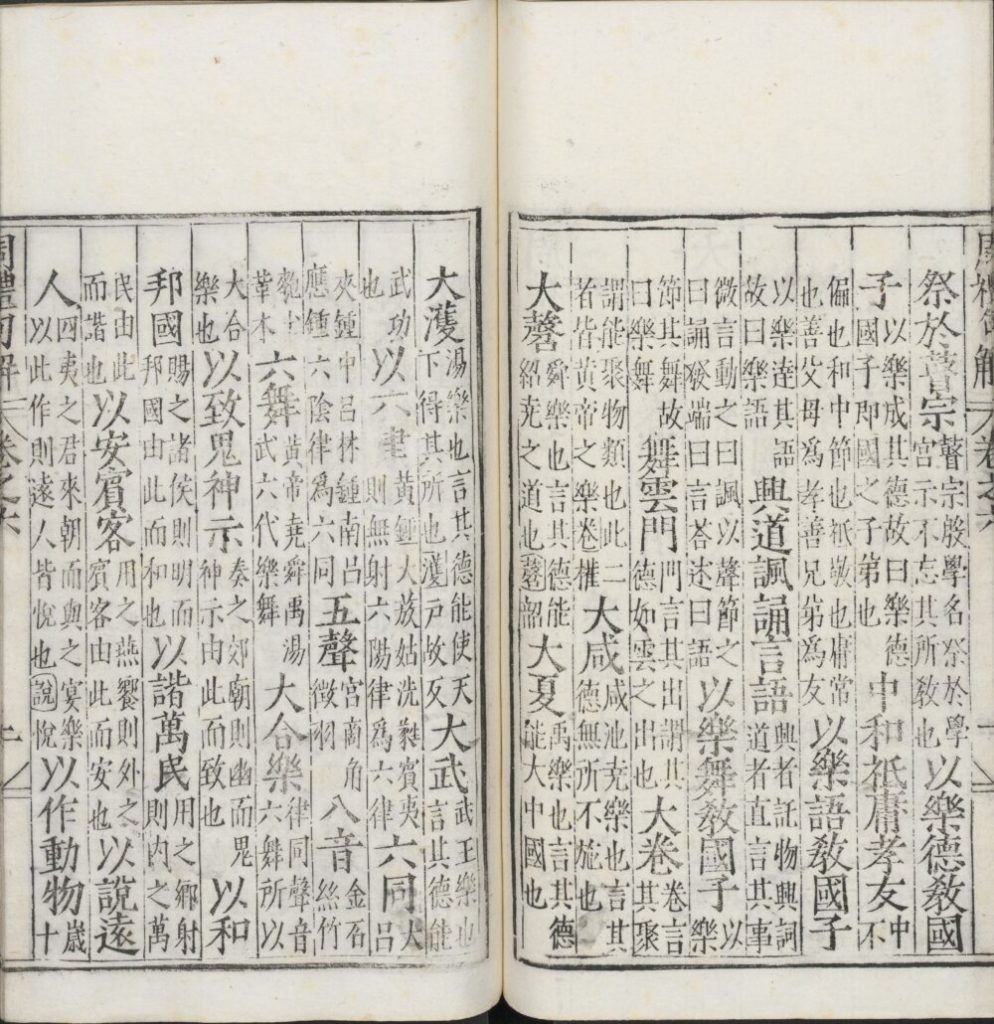 周禮句解 卷之六
祭於瞽宗瞽宗殷學名祭於學宮示不忘其所敎也以樂德敎國
子以樂成其德故曰樂德國子即國之子弟也中和祗庸孝友中不
偏也和中節也祗敬也庸常也善父母爲孝善兄弟爲友以樂語敎國子
以樂達其語故曰樂語興道諷誦言語興者託物興詞道者直言其事
微言動之曰諷以聲節之曰誦發端曰言荅述曰語以樂舞敎國子以樂
節其舞故曰樂舞舞雲門門言其出謂其德如雲之出也大卷卷言其聚
謂能聚物類也此二者皆黃帝之樂卷權大咸咸池尭樂也言其德無所不施也
大磬舜樂也言其德能紹尭之道也磬韶大夏禹樂也言其德能大中國也
大濩湯樂也言其德能使天下得其所也濩戸故反大武武王樂也言其德能
武功也以六律黃鍾大蔟姑洗蕤賓夷則無射六陽律爲六律六同大吕
夾鍾中吕林鍾南吕應鍾六陰律爲六同五聲宮商角徵羽八音金石絲竹
匏土革木六舞黃帝堯舜禹湯武六代樂舞大合樂律同聲音六舞所以
大合樂也以致鬼神示奏之郊廟則幽而鬼神示由此而致也以和
邦國賜之諸侯則明而邦國由此而和也以諧萬民用之鄉射則内之萬
民由此而諧也以安賓客用之燕饗則外之賓客由此而安也以說遠
人四夷之君來朝而與之宴樂以此作則遠人皆悅也說悅以作動物歲十
周禮句解 卷之六